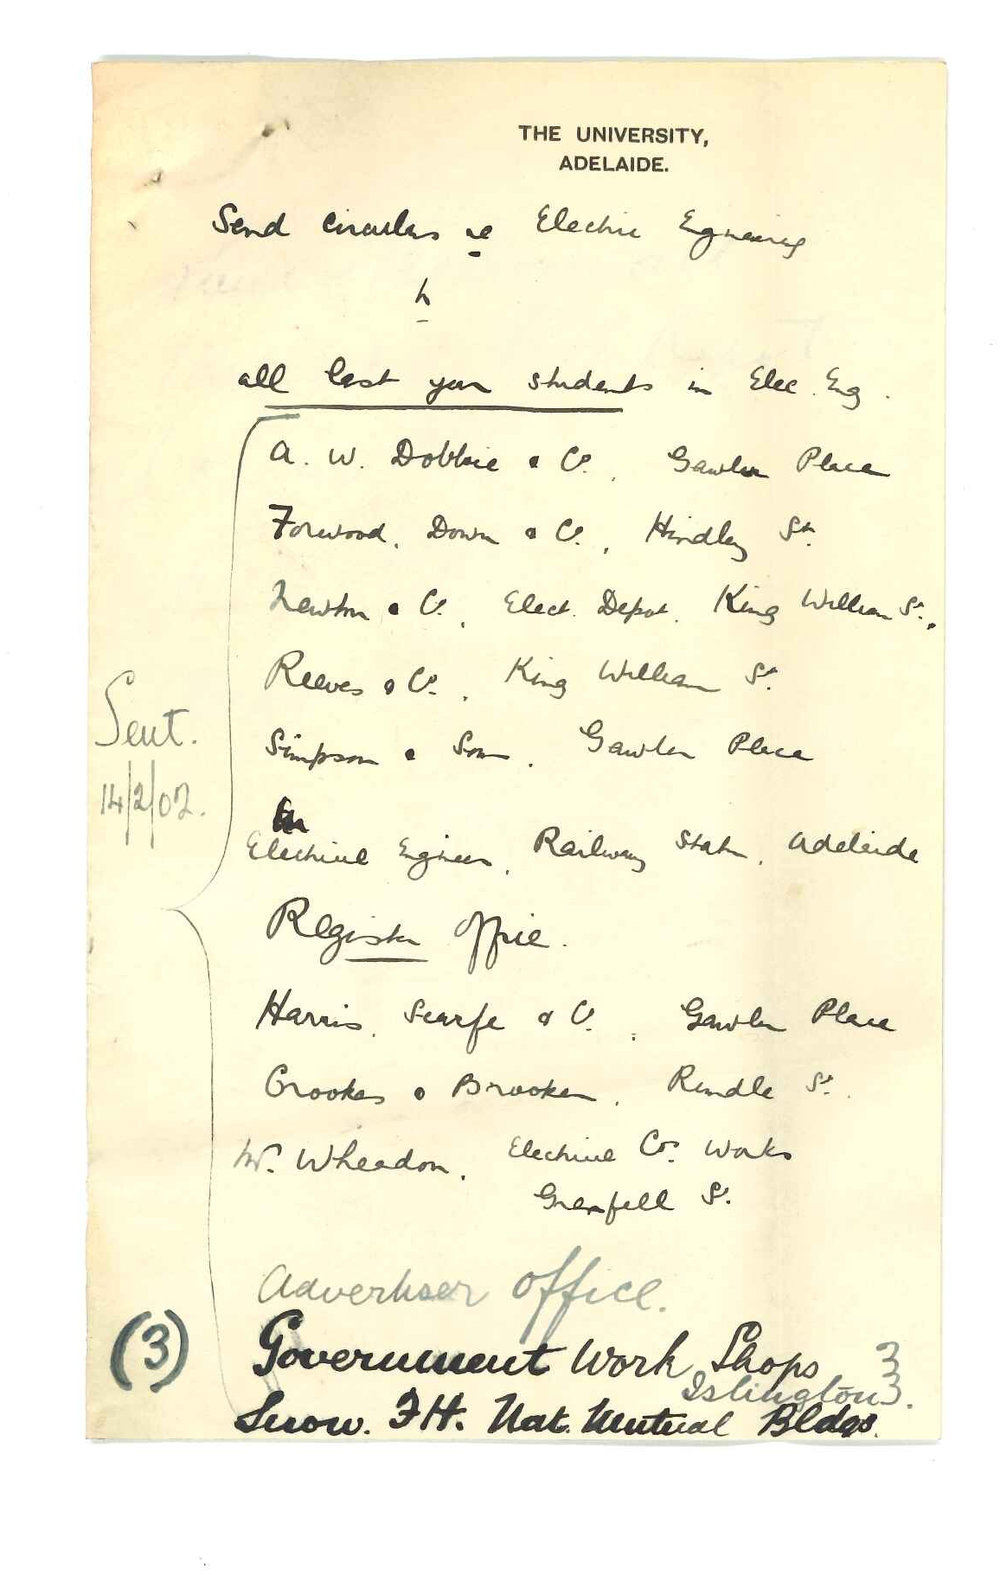 THE UNIVERSITY,
ADELAIDE.
Send circulars re Electric Egneering
to
all last year students in Elec. Eng.
A. W. Dobbie & Co., Gawler Place
Forwood, Down & Co., Hindley St.
Newton & Co., Elect. Depot, King William St.,
Reeves & Co., King William St.
Simpson & Son, Gawler Place
Sent.
14/2/02.
Electrical Egineer, Railway Statn, Adelaide
Register Office.
Harris, Scarfe & Co., Gawler Place
Crookes & Brooker, Rundle St.
Mr. Wheadon, Electrical Co. Works
Grenfell St.
Advertiser Office.
(3)
Government Work Shops 3
Islington 3.
Snow. F.H. Nat. Mutual Bldgs.